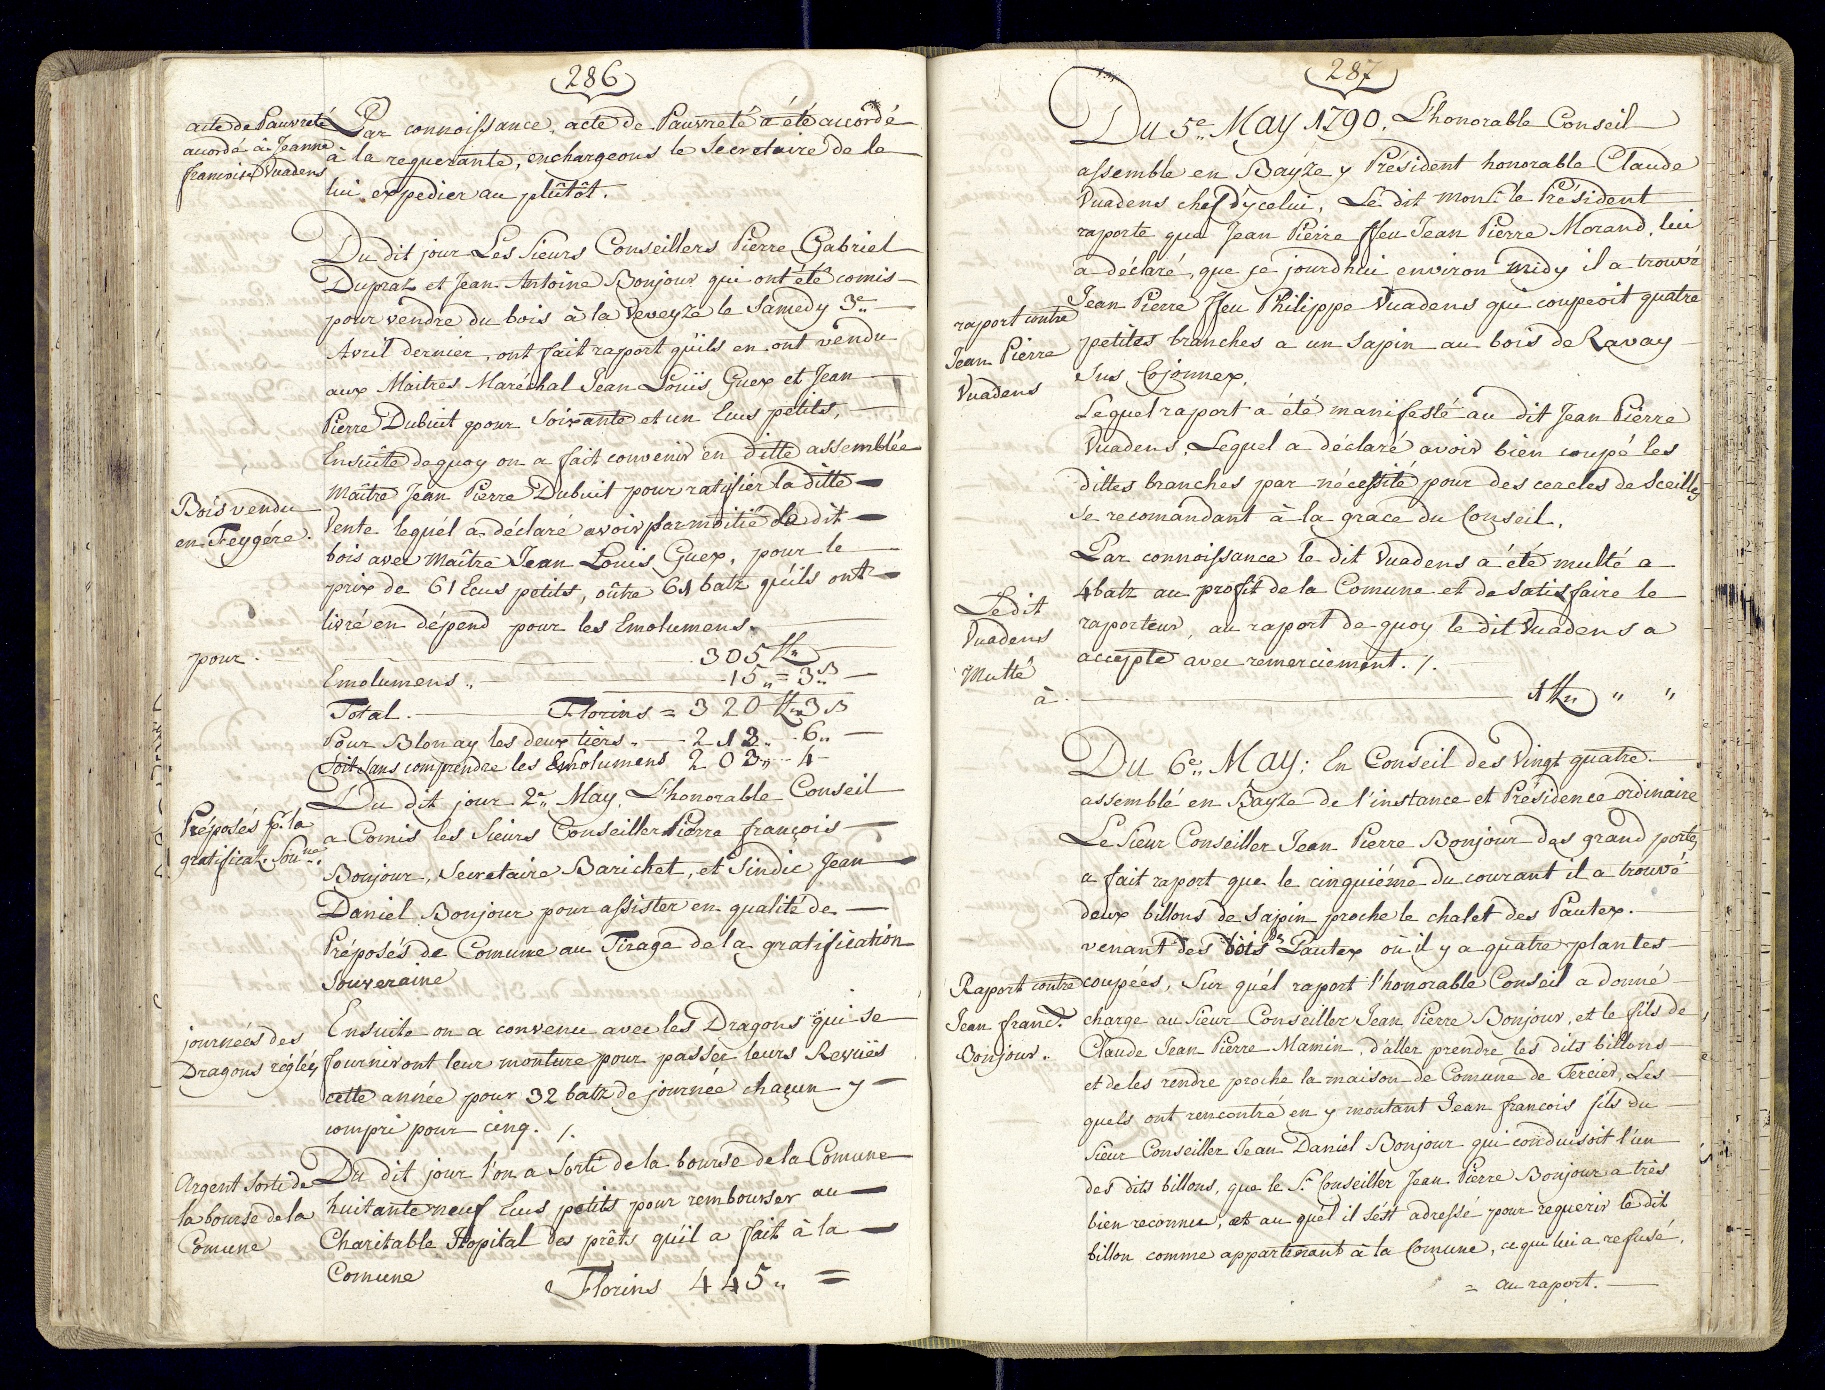 286
acte de Pauvreté
accordé à Jeanne
francoise Vuadens
Par connoissance, acte de Pauvreté a été accordé
à la requerante, enchargeons le Secretaire de le
lui expedier au plûtôt.
Du dit jour Les Sieurs Conseillers Pierre Gabriel
Dupraz et Jean Antoine Bonjour qui ont été comis
pour vendre du bois à la Veveyze le Samedy 3e.
Avril dernier, ont fait raport qu'ils en ont vendu
aux Maitres Maréchal Jean Loüis Guex et Jean
Pierre Dubuit pour Soixante et un Ecus petits,
Ensuite de quoy on a fait convenir en ditte assemblée
Bois vendu
en Feygére.
Maître Jean Pierre Dubuit pour ratifier la ditte
Vente lequél a déclaré avoir par moitié le dit
bois avec Maître Jean Louis Guex, pour le
prix de 61 Ecus petits, oûtre 61 batz qu'ils ont
livré en dépend pour les Emolumens.
pour. 305 ff
Emolumens 15 = 3 ß
Total. Florins = 320 ff 3 ß
Pour Blonay les deux tiers. 213 6
Soit Sans comprendre les Emolumens 203 4
Du dit jour 2e. May, L'honorable Conseil
Préposés p. la
gratificat. Soune.
a Comis les Sieurs Conseillers Pierre françois
Bonjour, Secretaire Barichet, et Sindic Jean
Daniel Bonjour pour assister en qualité de
Préposés de Comune au Tirage de la gratification
Souveraine
journées des
Dragons réglées
Ensuite on a convenu avec les Dragons qui se
fourniront leur monture pour passer leurs Revuës
cette année pour 32 batz de journée chaçun y
compri pour cinq. /.
Argent Sorti de
la bourse de la
Comune
Du dit jour l'on a Sorti de la bourse de la Comune
huitante neuf Ecus petits pour rembourser au
Charitable Hopital des prêts qu'il a fait à la
Comune
Florins 445 =
287
Du 5e. May 1790. L'honorable Conseil
assemble en Bayze y Président honorable Claude
Vuadens chef d'ycelui, Le dit Monsr. le Président
raporte que Jean Pierre ffeu Jean Pierre Morand, lui
a déclaré, que je jourdhui environ midy il a trouvé
raport contre
Jean Pierre
Vuadens
Jean Pierre ffeu Philippe Vuadens qui coupeoit quatre
petites branches a un Sapin au bois de Ravay
Sus Cojonnex.
Lequel raport a été manifesté au dit Jean Pierre
Vuadens, Lequel a déclaré avoir bien coupé les
dittes branches par nécessité pour des cercles de Sceilles
Se recomandant à la grace du Conseil.
Par connoissance le dit Vuadens a été multé a
Le dit
Vuadens
Multé
à
4 batz au profit de la Comune et de Satisfaire le
raporteur, au raport de quoy le dit Vuadens a
accepté avec remerciement. /.
1 ff " "
Du 6e. May: En Conseil des Vingt quatre
assemblé en Bayze de l'instance et Présidence ordinaire
Le Sieur Conseiller Jean Pierre Bonjour des grand portes
a fait raport que le cinquiéme du courant il a trouvé
deux billons de Sapin proche le chalet des Pautex.
venant des bois De Pautex où il y a quatre plantes
Raport contre
Jean franç.
Bonjour.
coupées, Sur quél raport l'honorable Conseil a donné
charge au Sieur Conseiller Jean Pierre Bonjour, et le fils de
Claude Jean Pierre Mamin, d'aller prendre les dits billons
et de les rendre proche la maison de Comune de Tercier, Les
quels ont rencontré en y montant Jean francois fils du
Sieur Conseiller Jean Daniel Bonjour qui conduisoit l'un
des dits billons, que le Sr. Conseiller Jean Pierre Bonjour a très
bien reconnu, et au quél il s'est adressé pour requerir le dit
billon comme appartenant à la Comune, ce qui lui a refusé.
= au raport.